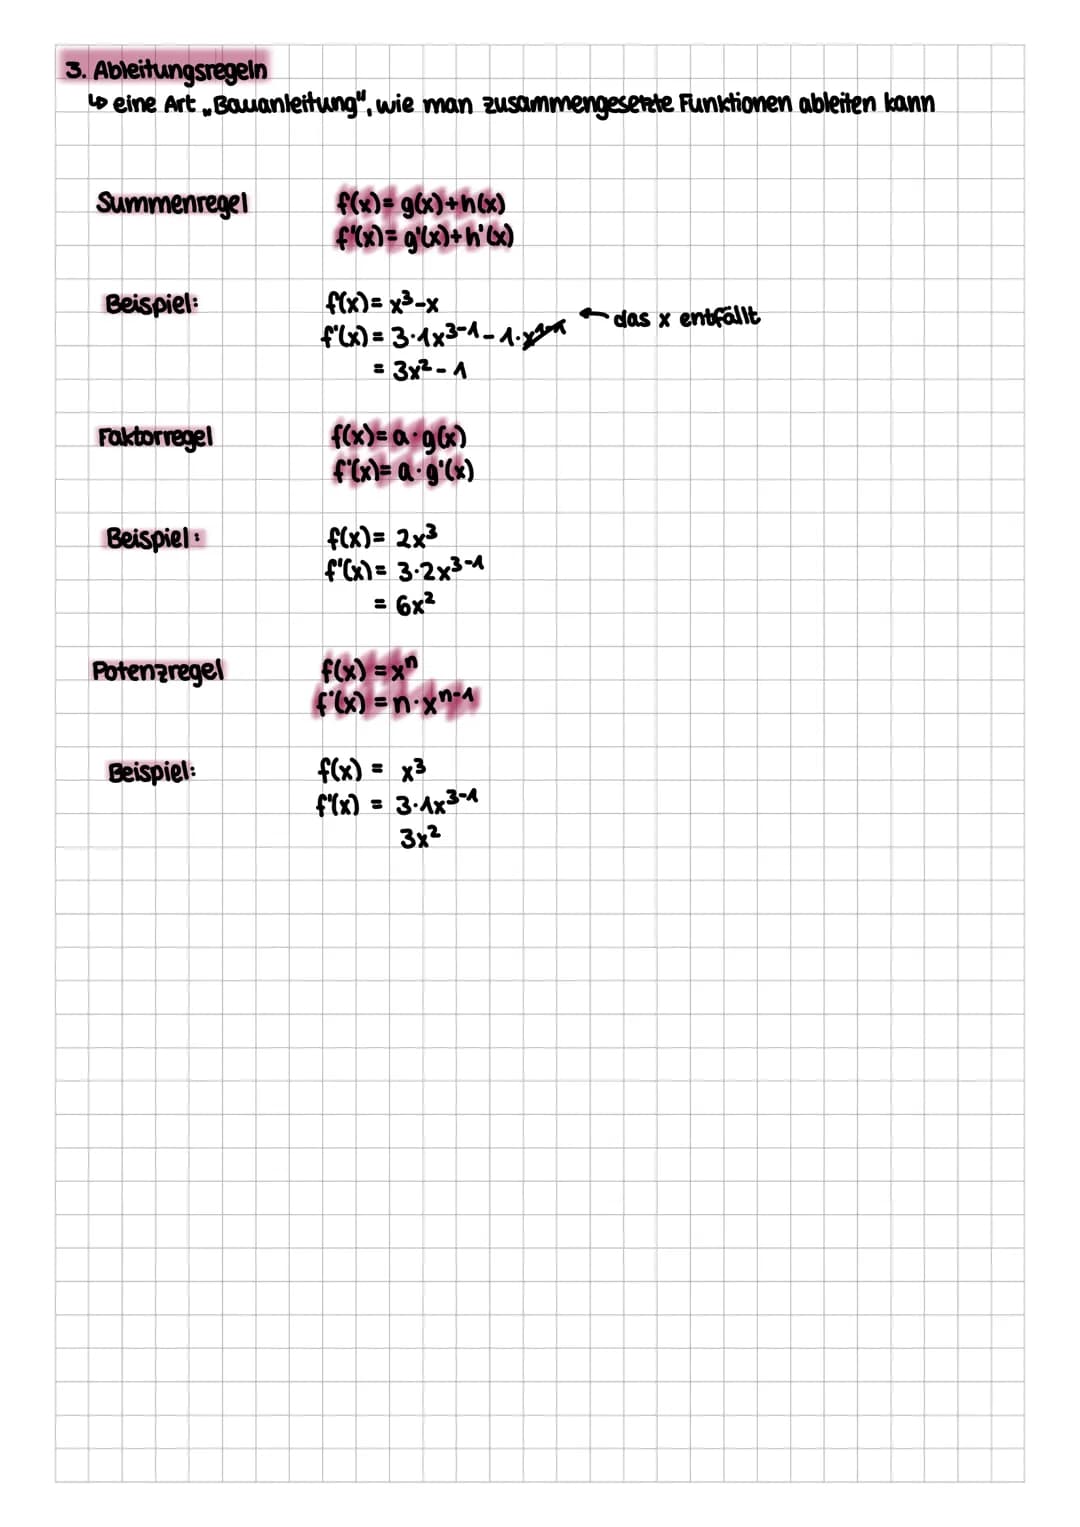 3. Ableitungsregeln
↳ eine Art „Bauanleitung", wie man zusammengesetzte Funktionen ableiten kann
Summenregel f(x)= g(x)+h(x)
f'(x)= g'(x)+h'(x)
Beispiel: f(x)= x³-x
f'(x)= 3·1x³⁻¹-1·x¹⁻¹ ← das x entfällt
= 3x²-1
Faktorregel f(x)= a·g(x)
f'(x)= a·g'(x)
Beispiel: f(x)= 2x³
f'(x)= 3·2x³⁻¹
= 6x²
Potenzregel f(x) = xⁿ
f'(x) = n·xⁿ⁻¹
Beispiel: f(x) = x³
f'(x) = 3·1x³⁻¹
3x²